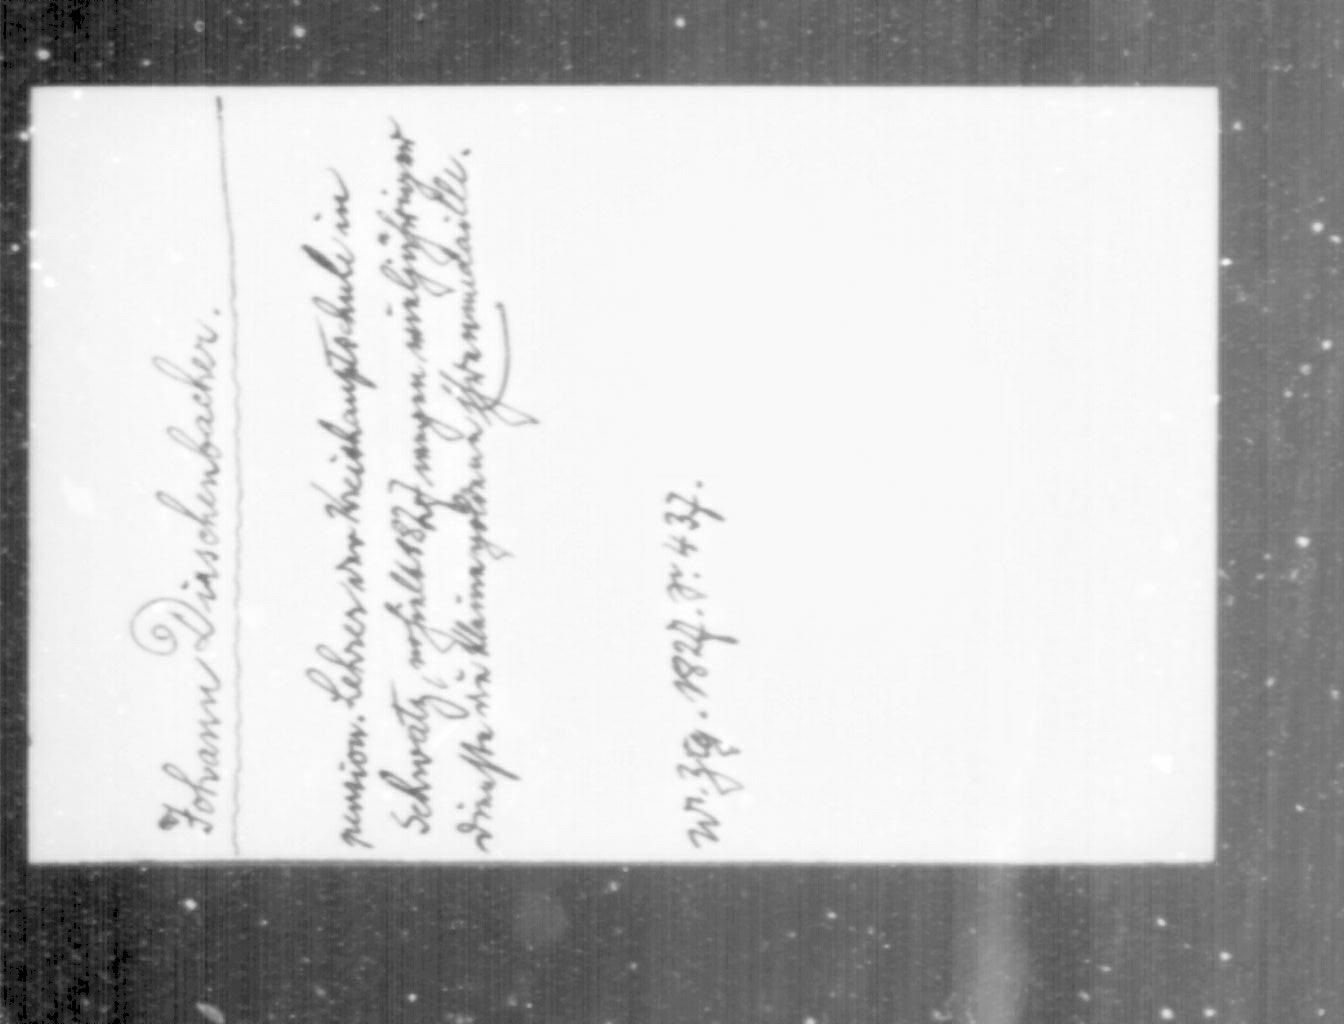 Johann Diaschenbacher.
pension. Lehrer der Kreishauptschule in
Schwatz, erhält 1827 wegen vieljähriger
Dienste die kleine goldene Ehrenmedaille.
Wr. Ztg. 1827. S. 437.